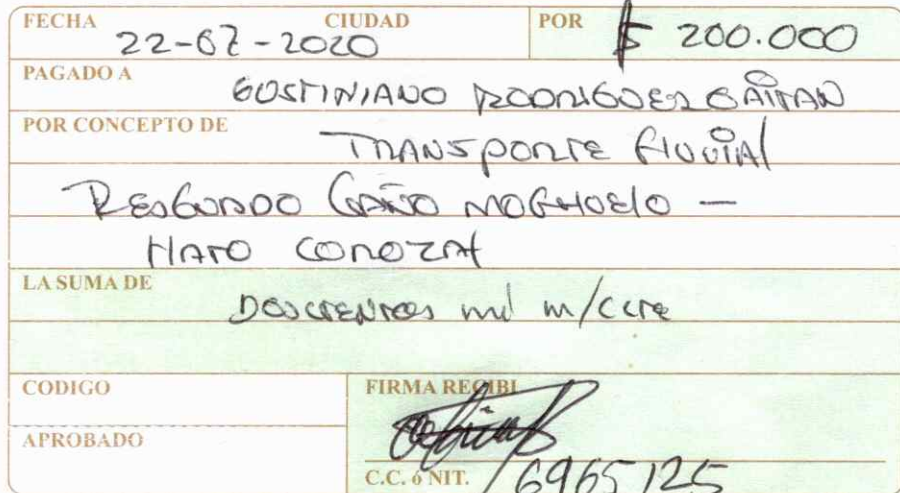 FECHA CIUDAD POR
22-07-2020 $ 200.000
PAGADO A
GUSTINIANO RODRIGUEZ GAITAN
POR CONCEPTO DE
TRANSPORTE FLUVIAL
RESGUARDO CAÑO MOCHUELO —
HATO COROZAL
LA SUMA DE
DOSCIENTOS mil m/cte
CODIGO FIRMA RECIBI
APROBADO
C.C. ó NIT. 6965125